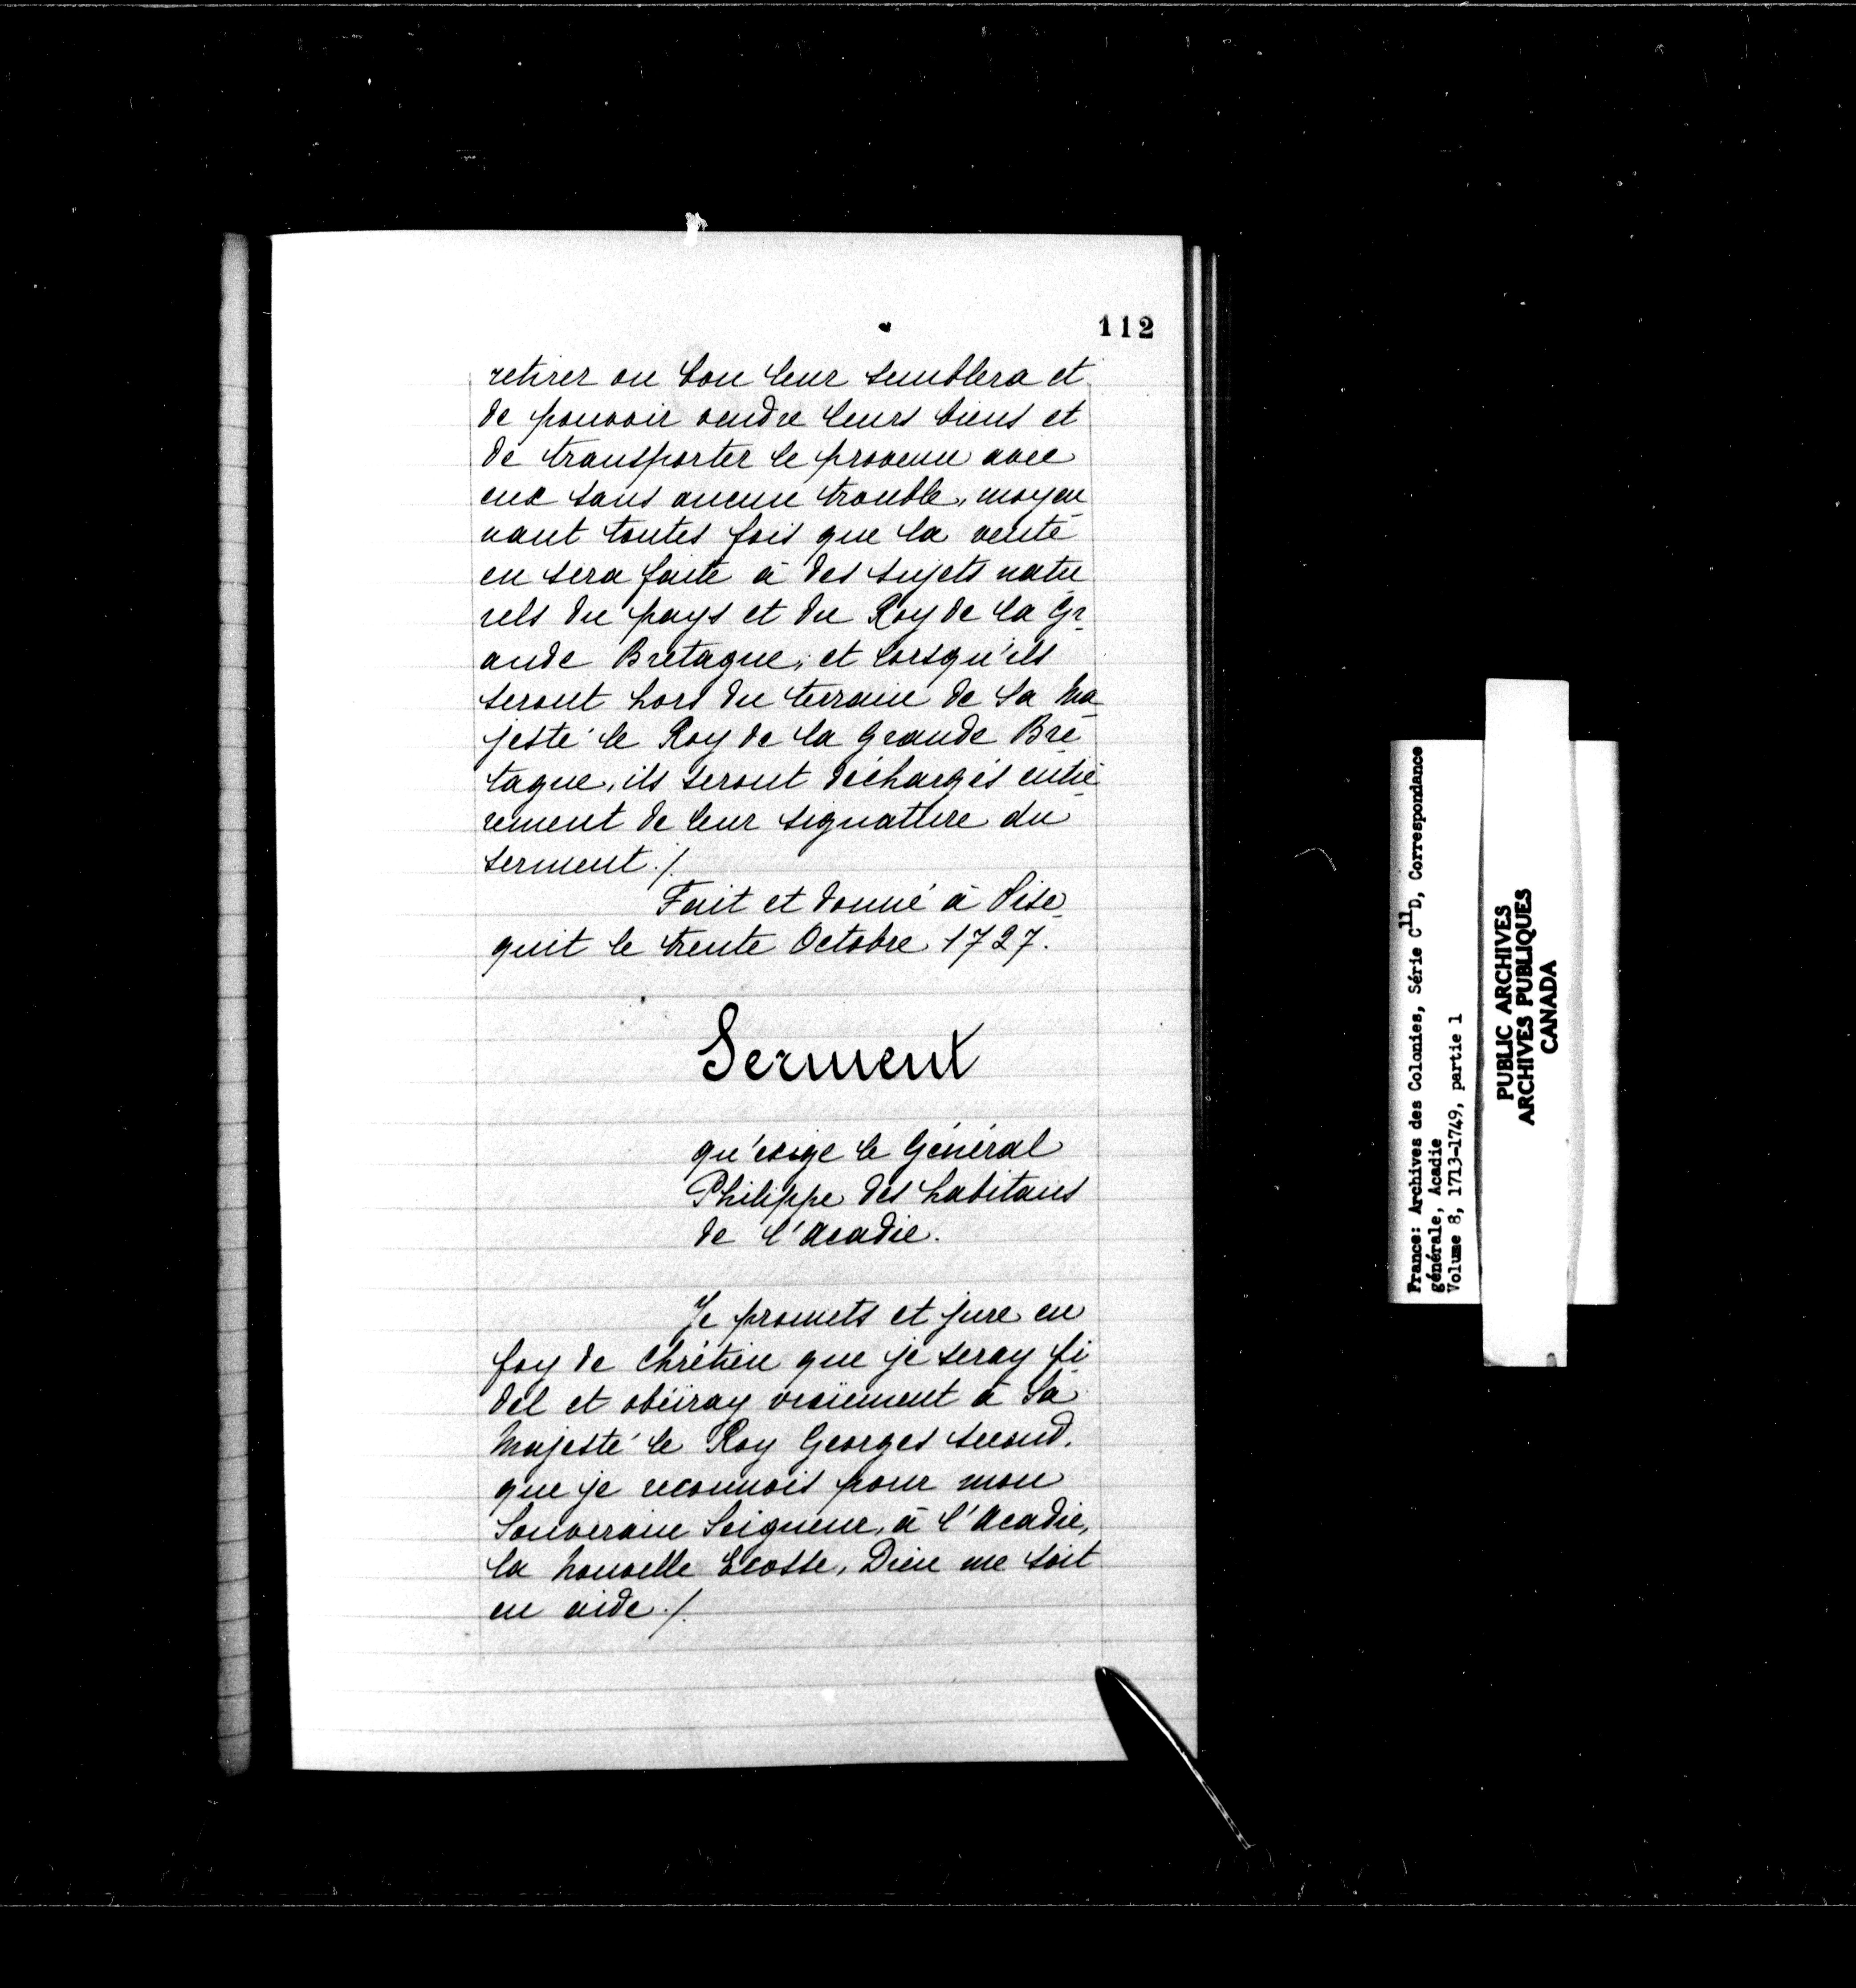 112
retirer ou bon leur semblera et
de pouvoir vendre leurs biens et
de transporter le provenu avec
eux sans aucun trouble, moyen
nant toutes fois que la vente
en sera faite à des sujets natu
rels du pays et du Roy de la Gr-
ande Bretagne, et lorsqu'ils
seront hors du terrain de Sa Ma
jesté le Roy de la Grande Bre
tagne, ils seront déchargés entiè
rement de leur signatture du
serment ./.
Fait et donné à Pise
quit le trente Octobre 1727.
Serment
qu'exige le Général
Philippe des habitans
de l'Acadie.
Je promets et jure en
foy de Chrétien que je seray fi
del et obéiray vraiement à Sa
Majesté le Roy Georges second,
que je reconnois pour mon
Souverain Seigneur, à l'Acadie,
la Nouvelle Ecosse, Dieu me soit
en aide ./.
France: Archives des Colonies, Série C11D, Correspondance
générale, Acadie
Volume 8, 1713-1749, partie 1
PUBLIC ARCHIVES
ARCHIVES PUBLIQUES
CANADA